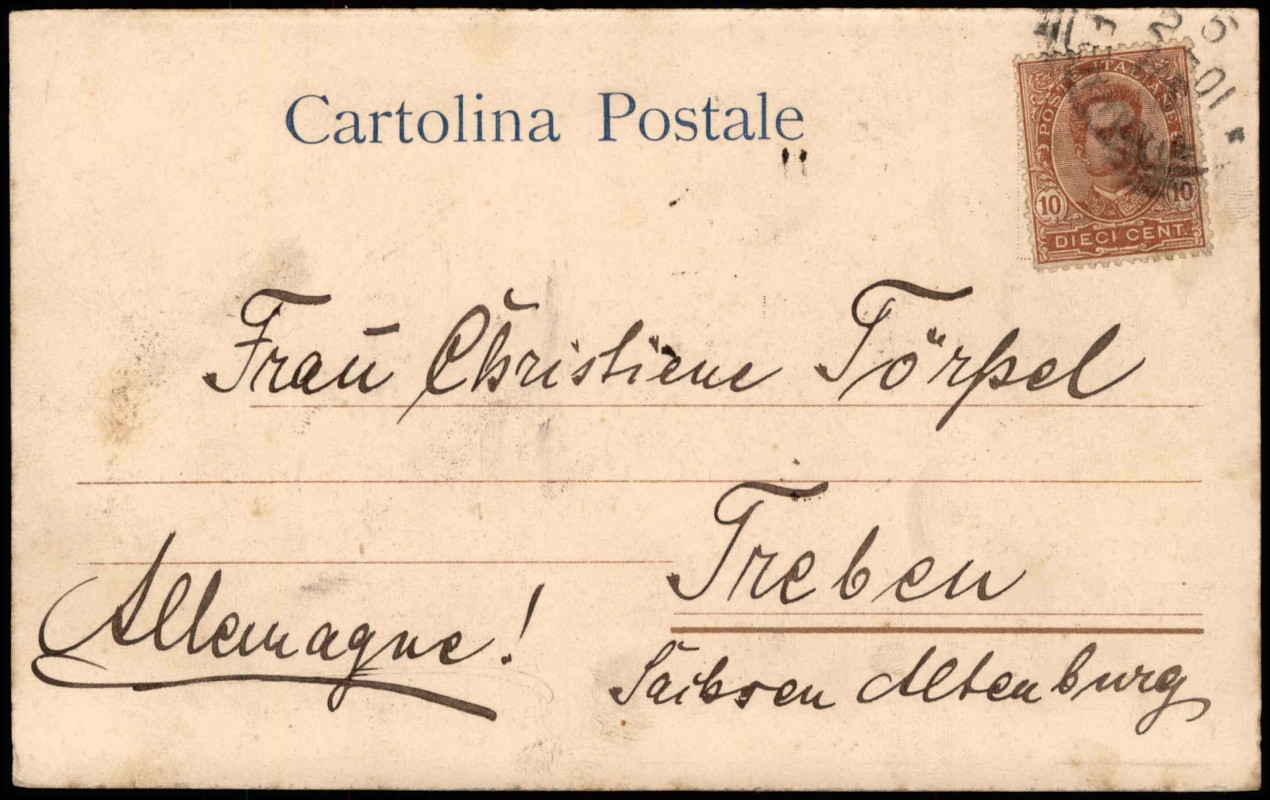 Cartolina Postale
POSTE ITALIANE
10 10
DIECI CENT.
Frau Christiene Törpel
Treben
Allemagne!
Sachsen Altenburg